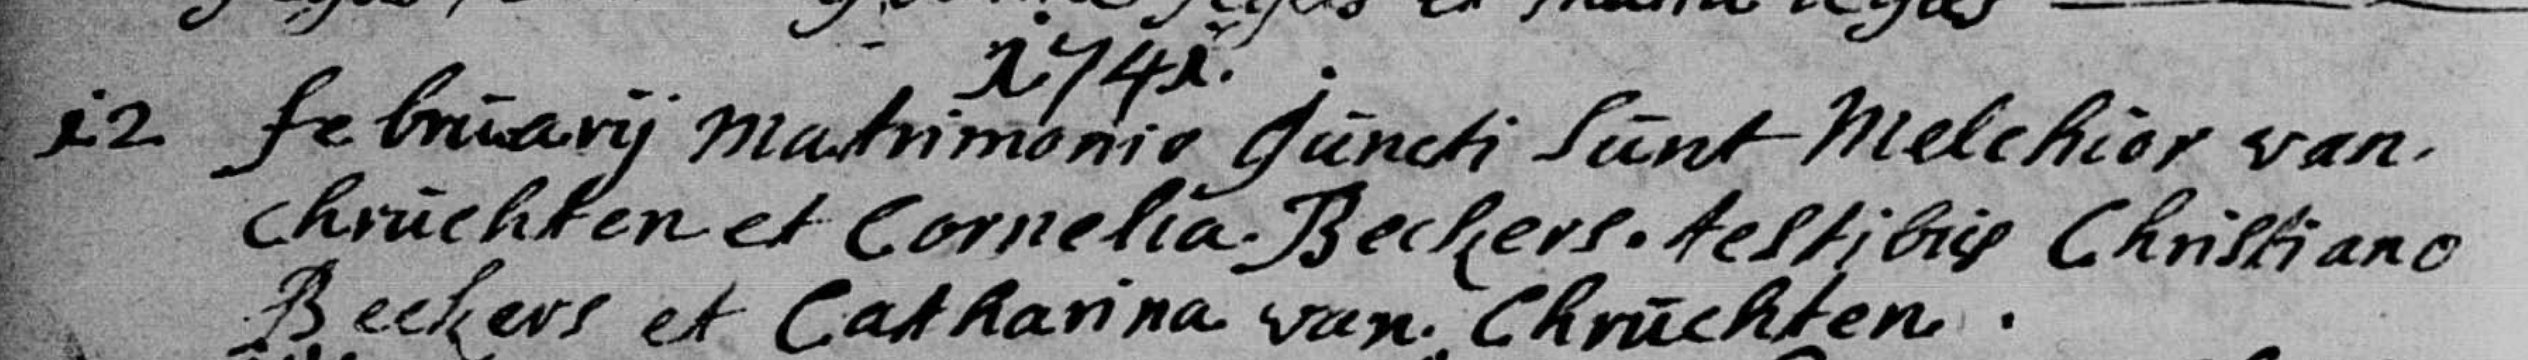 et
1741.
12 februarij Matrimonio Juncti Sunt Melchior van
chruchten et Cornelia Beckers. testibus Christiano
Beckers et Catharina van Chruchten.